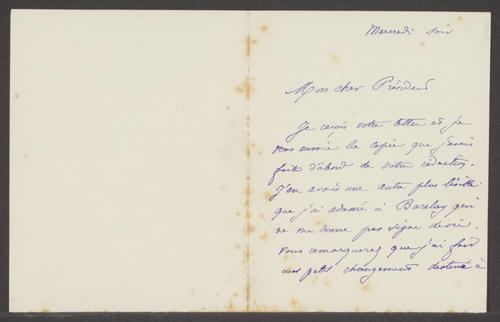 Mercredi soir
Mon cher Président
Je reçois votre lettre et je
vous envoie la copie que j'avais
fait d'abord de votre rédaction.
J'en avais une autre plus lisible
que j'ai adressée à Barclay qui
ne me donne pas signe de vie.
Vous remarquerez que j'ai fait
un petit changement destiné à